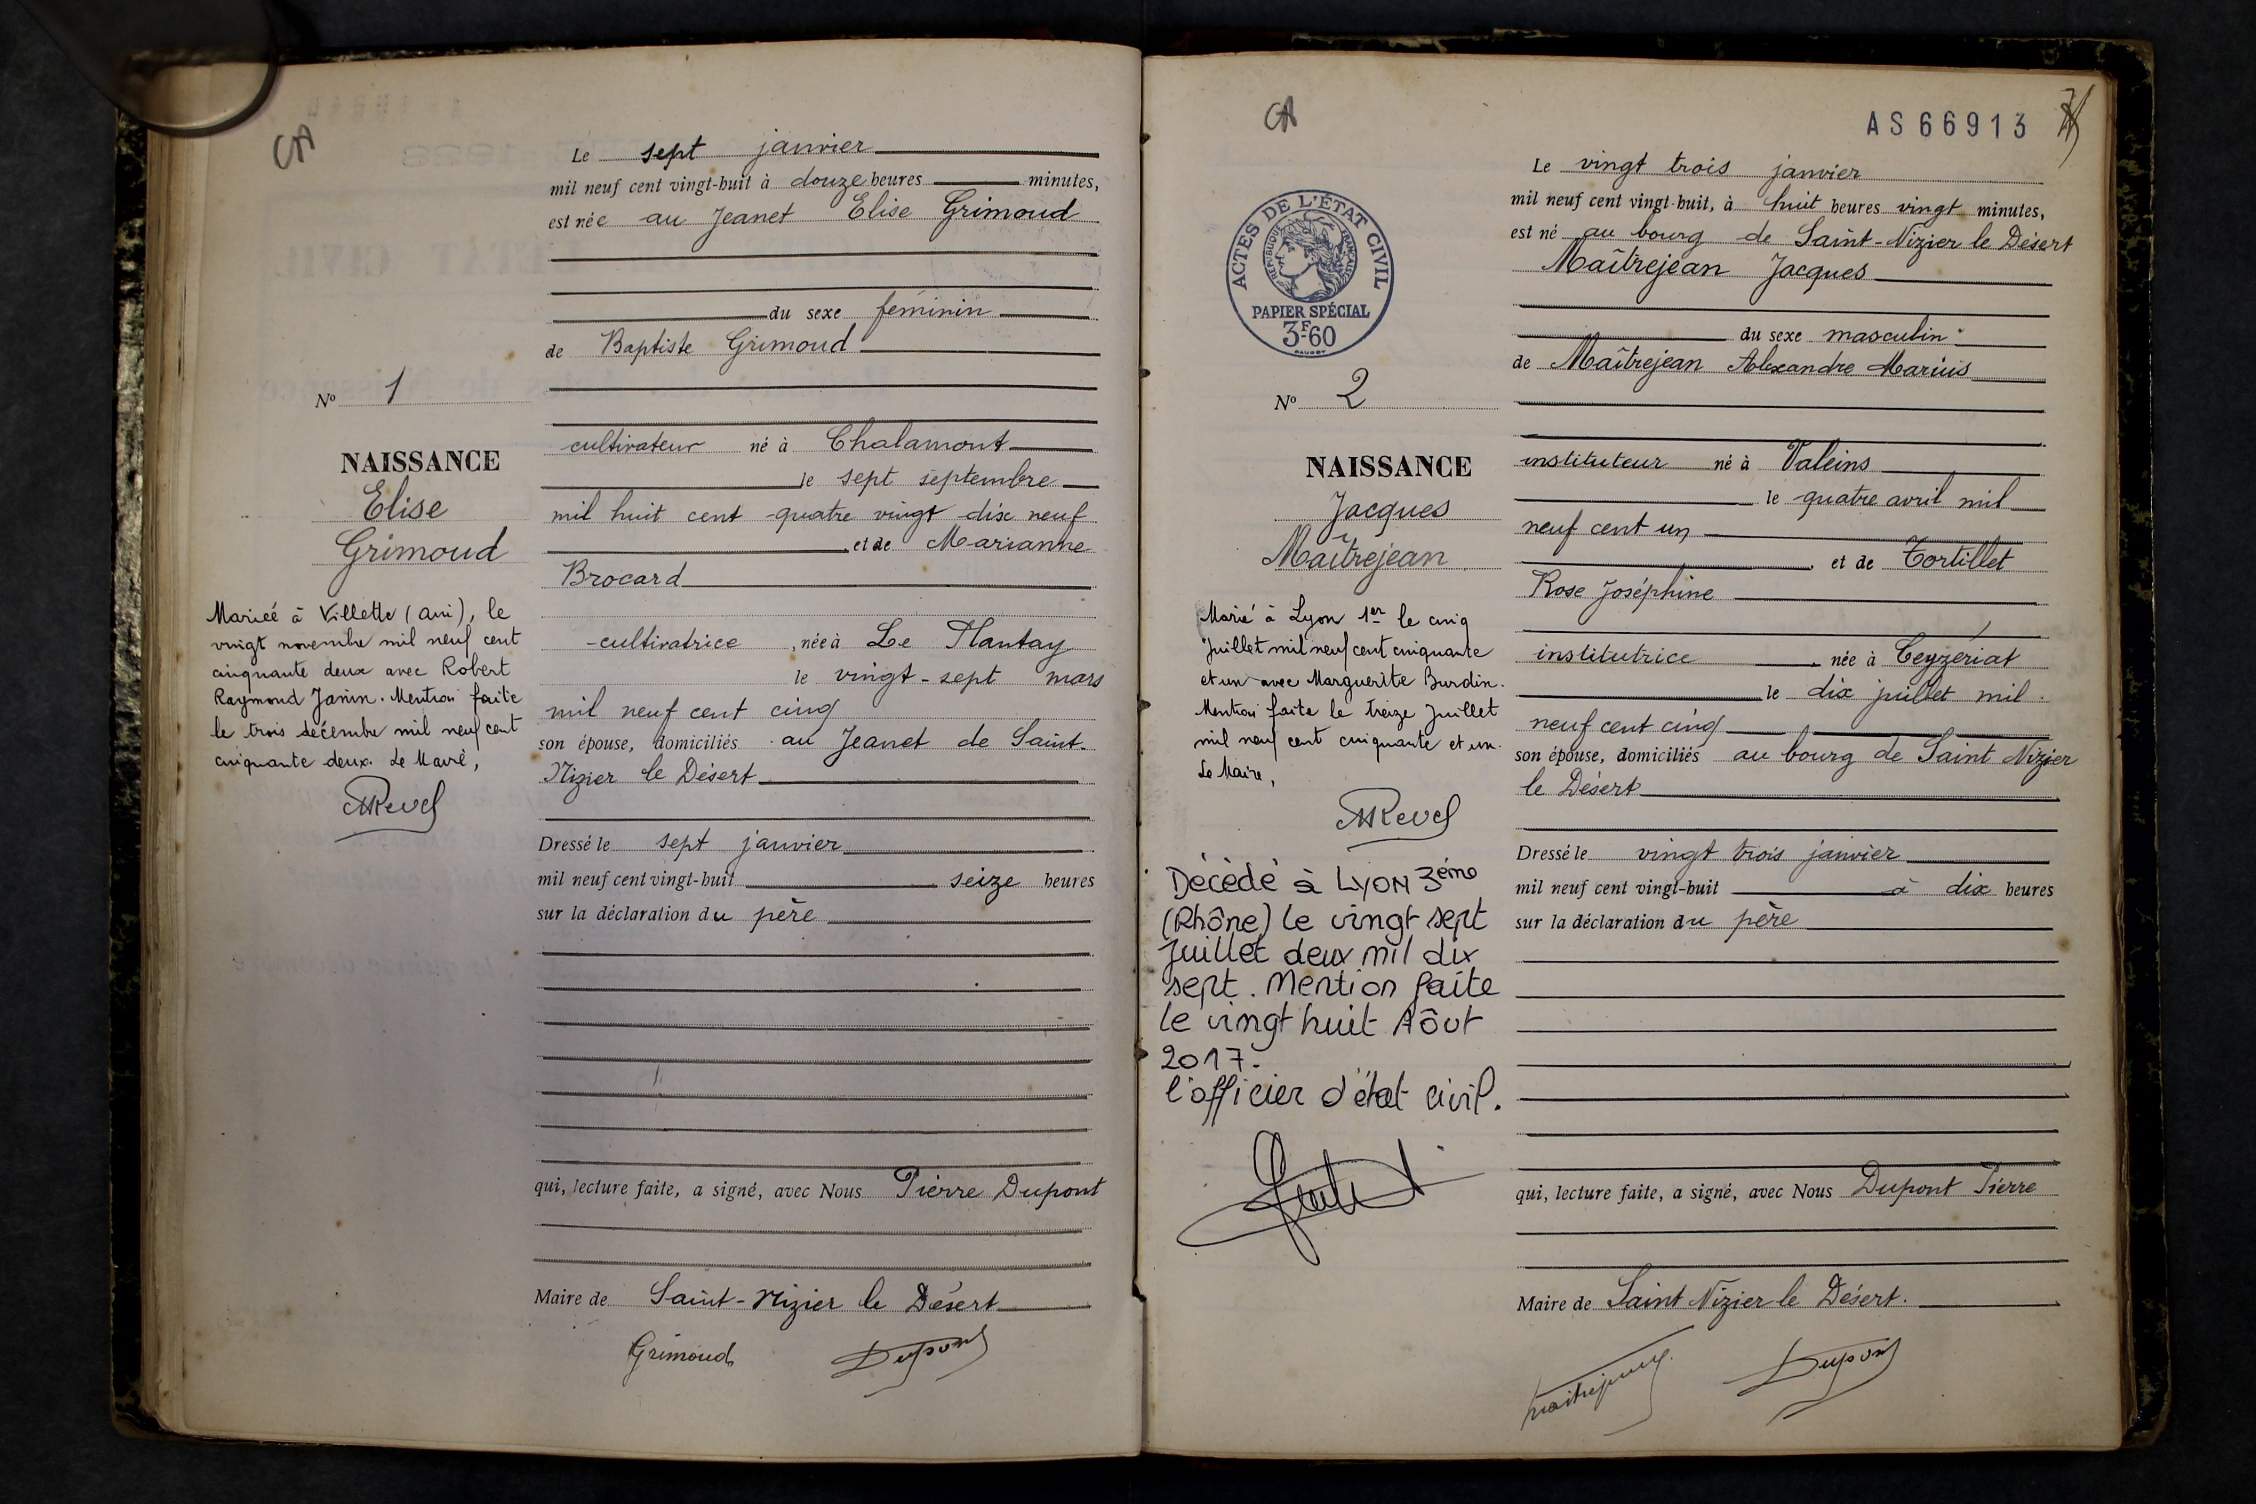 CA
Le sept janvier
mil neuf cent vingt-huit à douze heures minutes,
est née au Jeanet Elise Grimoud
du sexe féminin
de Baptiste Grimoud
cultivateur né à Chalamont
le sept septembre
mil huit cent quatre vingt dix neuf
et de Marianne
Brocard
cultivatrice, née à Le Plantay
le vingt-sept mars
mil neuf cent cinq
son épouse, domiciliés au Jeanet de Saint-
Nizier le Désert
Dressé le sept janvier
mil neuf cent vingt-huit seize heures
sur la déclaration du père
qui, lecture faite, a signé, avec Nous Pierre Dupont
Maire de Saint-Nizier le Désert
Grimoud Dupont
No 1
NAISSANCE
Elise
Grimoud
Mariée à Villette (Ain), le
vingt novembre mil neuf cent
cinquante deux avec Robert
Raymond Janin. Mention faite
le trois décembre mil neuf cent
cinquante deux. Le Maire,
Revel
CA
AS66913
ACTES DE L'ÉTAT CIVIL
RÉPUBLIQUE FRANÇAISE
PAPIER SPÉCIAL
3F60
No 2
NAISSANCE
Jacques
Maîtrejean
Marié à Lyon 1er le cinq
Juillet mil neuf cent cinquante
et un avec Marguerite Burdin.
Mention faite le treize Juillet
mil neuf cent cinquante et un.
Le Maire,
Revel
Décédé à LYON 3ème
(Rhône) le vingt sept
Juillet deux mil dix
sept. Mention faite
le vingt huit Aôut
2017.
l'officier d'état civil.
Le vingt trois janvier
mil neuf cent vingt-huit, à huit heures vingt minutes,
est né au bourg de Saint-Nizier le Désert
Maîtrejean Jacques
du sexe masculin
de Maîtrejean Alexandre Marius
instituteur né à Valeins
le quatre avril mil
neuf cent un
et de Tortillet
Rose Joséphine
institutrice née à Ceyzériat
le dix juillet mil
neuf cent cinq
son épouse, domiciliés au bourg de Saint Nizier
le Désert
Dressé le vingt trois janvier
mil neuf cent vingt-huit à dix heures
sur la déclaration du père
qui, lecture faite, a signé, avec Nous Dupont Pierre
Maire de Saint Nizier le Désert.
Maitrejean Dupont